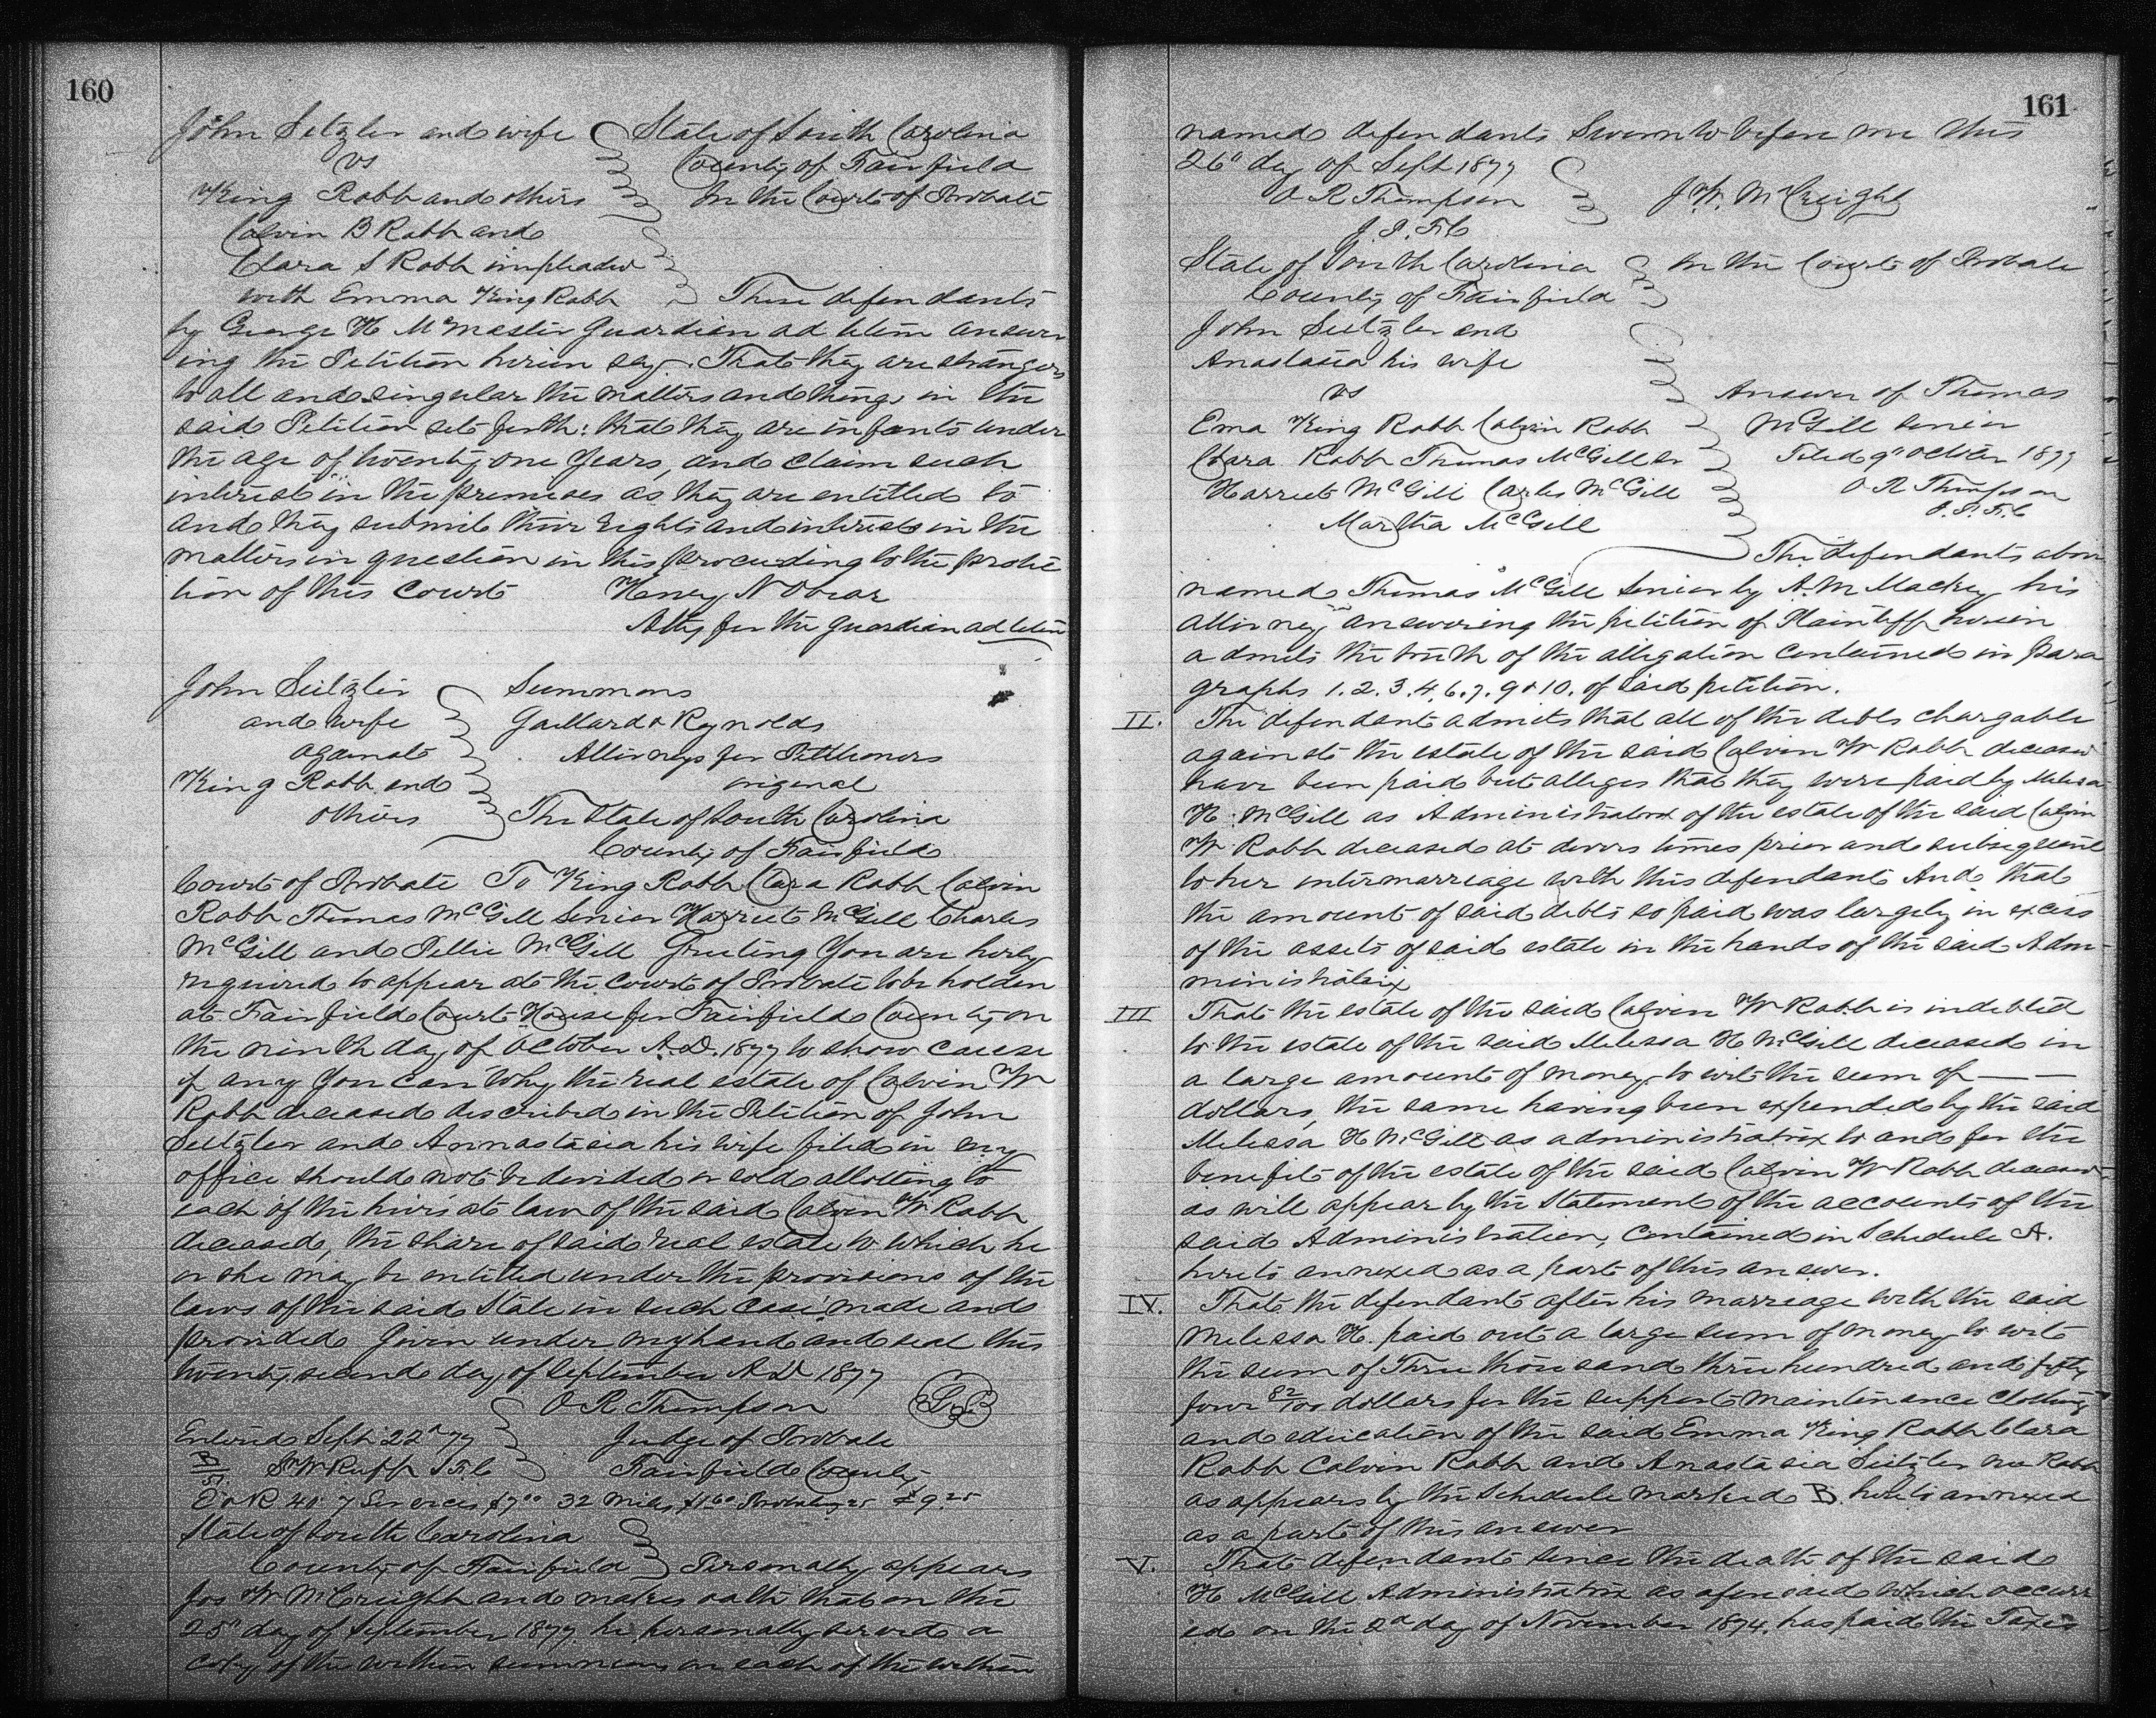 160
John Seitzler and wife State of South Carolina
vs County of Fairfield
King Robb and others In the Court of Probate
Calvin B Robb and
Clara S Robb impleaded
with Emma King Robb These defendants
by George H McMaster Guardian ad litem answer
ing the Petition herein say. That they are strangers
to all and singular the matters and things in the
said Petition set forth: that they are infants under
the age of twenty one years, and claim such
interest in the premises as they are entitled to
and they submit their rights and interests in the
matters in question in this proceeding to the protec
tion of this Court Henry N Obear
Atty for the guardian ad litem
John Seitzler Summons
and wife Gaillard & Reynolds
against Attorneys for Petitioners
King Robb and original
others The State of South Carolina
County of Fairfield
Court of Probate To King Robb Clara Robb Calvin
Robb Thomas McGill Senior Harriet McGill Charles
McGill and Pellie McGill Greeting You are herby
required to appear at the Court of Probate to be holden
at Fairfield Court House for Fairfield County on
the ninth day of October A.D. 1877 to show cause
if any you can why the real estate of Calvin W
Robb deceased described in the Petition of John
Seitzler and Annastasia his wife filed in my
office should not be divided or sold allotting to
each of the heirs at law of the said Calvin W Robb
deceased, the share of said real estate to which he
or she may be entitled under the provisions of the
laws of the said State in such case made and
provided Given under my hand and seal this
twenty second day of September A.D 1877
O R Thompson L.S
Entered Sept 22d 77 Judge of Probate
S W Ruff S F C Fairfield County
E & R 40 7 Services $7.00 32 miles $1.60 Probating 25 $9.25
State of South Carolina
County of Fairfield Personally appears
Jos W McCreight and makes oath that on the
25th day of September 1877 he personally served a
copy of the within summons on each of the within
161
named defendants Sworn to before me this
26th day of Sept 1877
O R Thompson J.W. McCreight
J. P. F.C
State of South Carolina In the Court of Probate
County of Fairfield
John Seitzler and
Anastasia his wife
vs Answer of Thomas
Ema King Robb Calvin Robb McGill Senior
Clara Robb Thomas McGill Sr Filed 9th October 1877
Harriet McGill Carles McGill O R Thompson
Martha McGill J. P. F. C
The defendants above
named Thomas McGill Senior by A. M Mackey his
attorney answering the petition of Plaintiff herein
admits the truth of the alligation contained in para
graphs 1. 2. 3. 4. 6. 7. 9 & 10. of said petition.
II. The defendant admits that all of the debts chargable
against the estate of the said Calvin W Robb deceased
have been paid but alleges that they were paid by Melissa
H. McGill as Administratrix of the estate of the said Calvin
W Robb deceased at divers times prior and subsequent
to her intermarriage with this defendant And that
the amount of said debts so paid was largely in excess
of the assets of said estate in the hands of the said Adm
ministratrix
III That the estate of the said Calvin W Robb is indebted
to the estate of the said Melissa H McGill deceased in
a large amount of money to wit the sum of — —
dollars, the same having been expended by the said
Melissa H McGill as administratrix to and for the
benefit of the estate of the said Calvin W Robb deceased
as will appear by the Statement of the accounts of the
said Administration, contained in Schedule A.
hereto annexed as a part of this answer.
IV. That the defendant after his marriage with the said
Melissa H. paid out a large sum of money to wit
the sum of Three thousand three hundred and fifty
four 82/100 dollars for the support maintenance clothing
and education of the said Emma King Robb Clara
Robb Calvin Robb and Anastasia Seitzler nee Robb
as appears by the Schedule marked B. hereto annexed
as a part of this answer
V. That defendant since the death of the said
H McGill Administratrix as aforesaid which occurr
ed on the 2d day of November 1874. has paid the Taxes